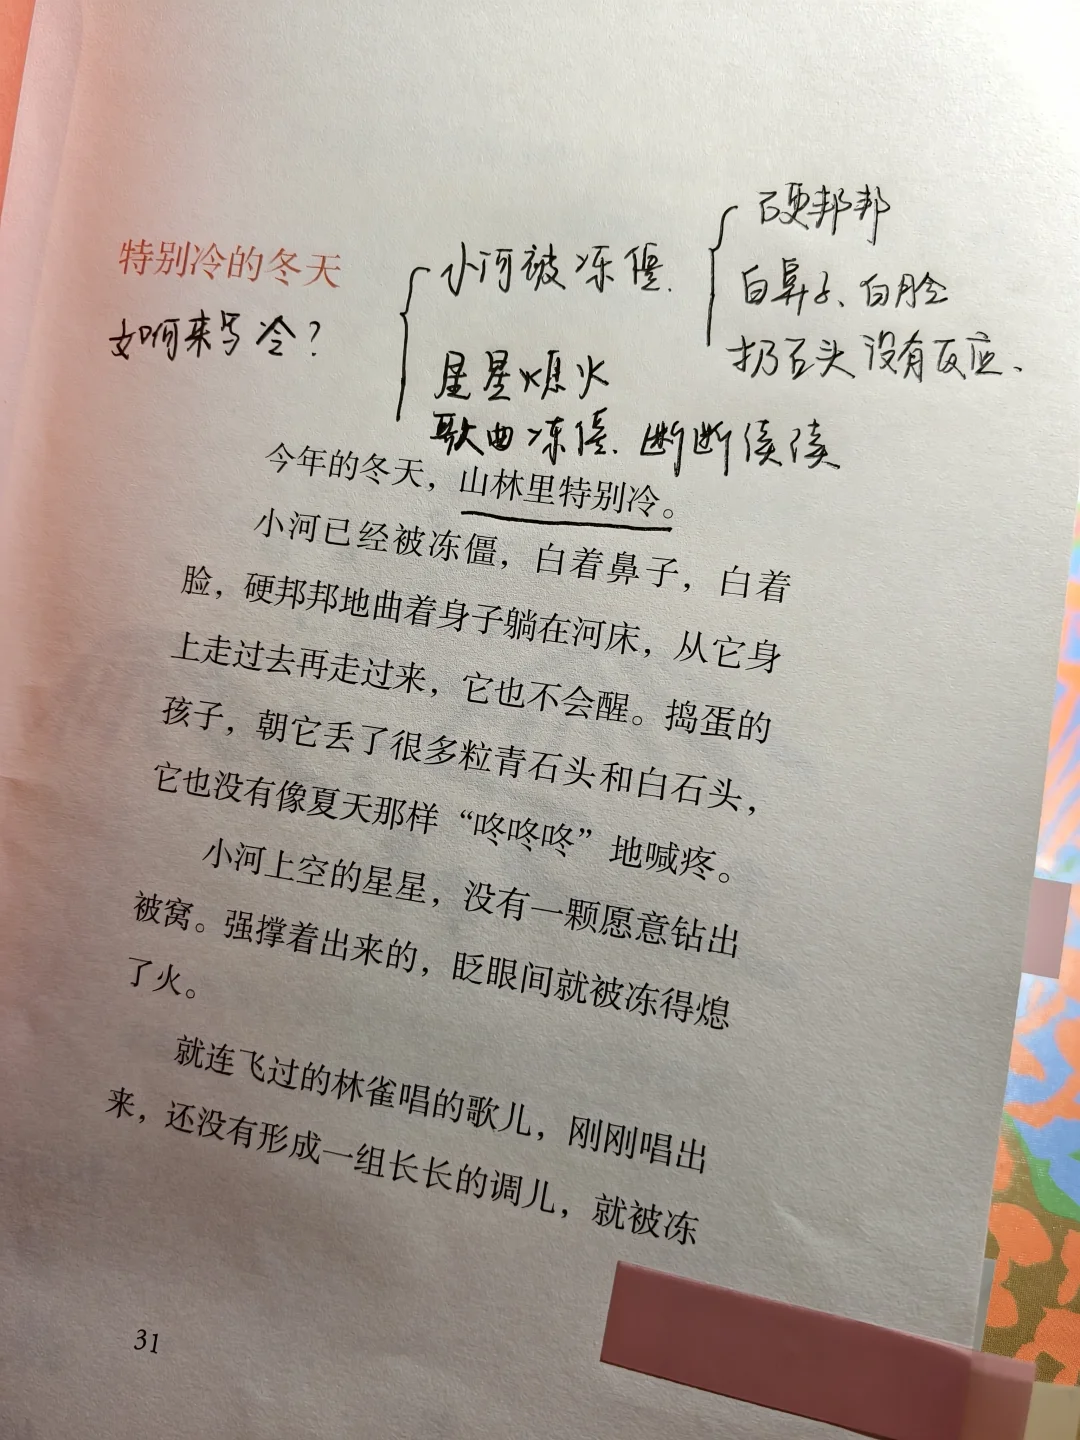 硬邦邦
特别冷的冬天
小河被冻僵.
白鼻子、白脸
如何来写冷?
扔石头没有反应.
星星熄火
歌曲冻僵.断断续续
今年的冬天，山林里特别冷。
小河已经被冻僵，白着鼻子，白着
脸，硬邦邦地曲着身子躺在河床，从它身
上走过去再走过来，它也不会醒。捣蛋的
孩子，朝它丢了很多粒青石头和白石头，
它也没有像夏天那样“咚咚咚”地喊疼。
小河上空的星星，没有一颗愿意钻出
被窝。强撑着出来的，眨眼间就被冻得熄
了火。
就连飞过的林雀唱的歌儿，刚刚唱出
来，还没有形成一组长长的调儿，就被冻
31